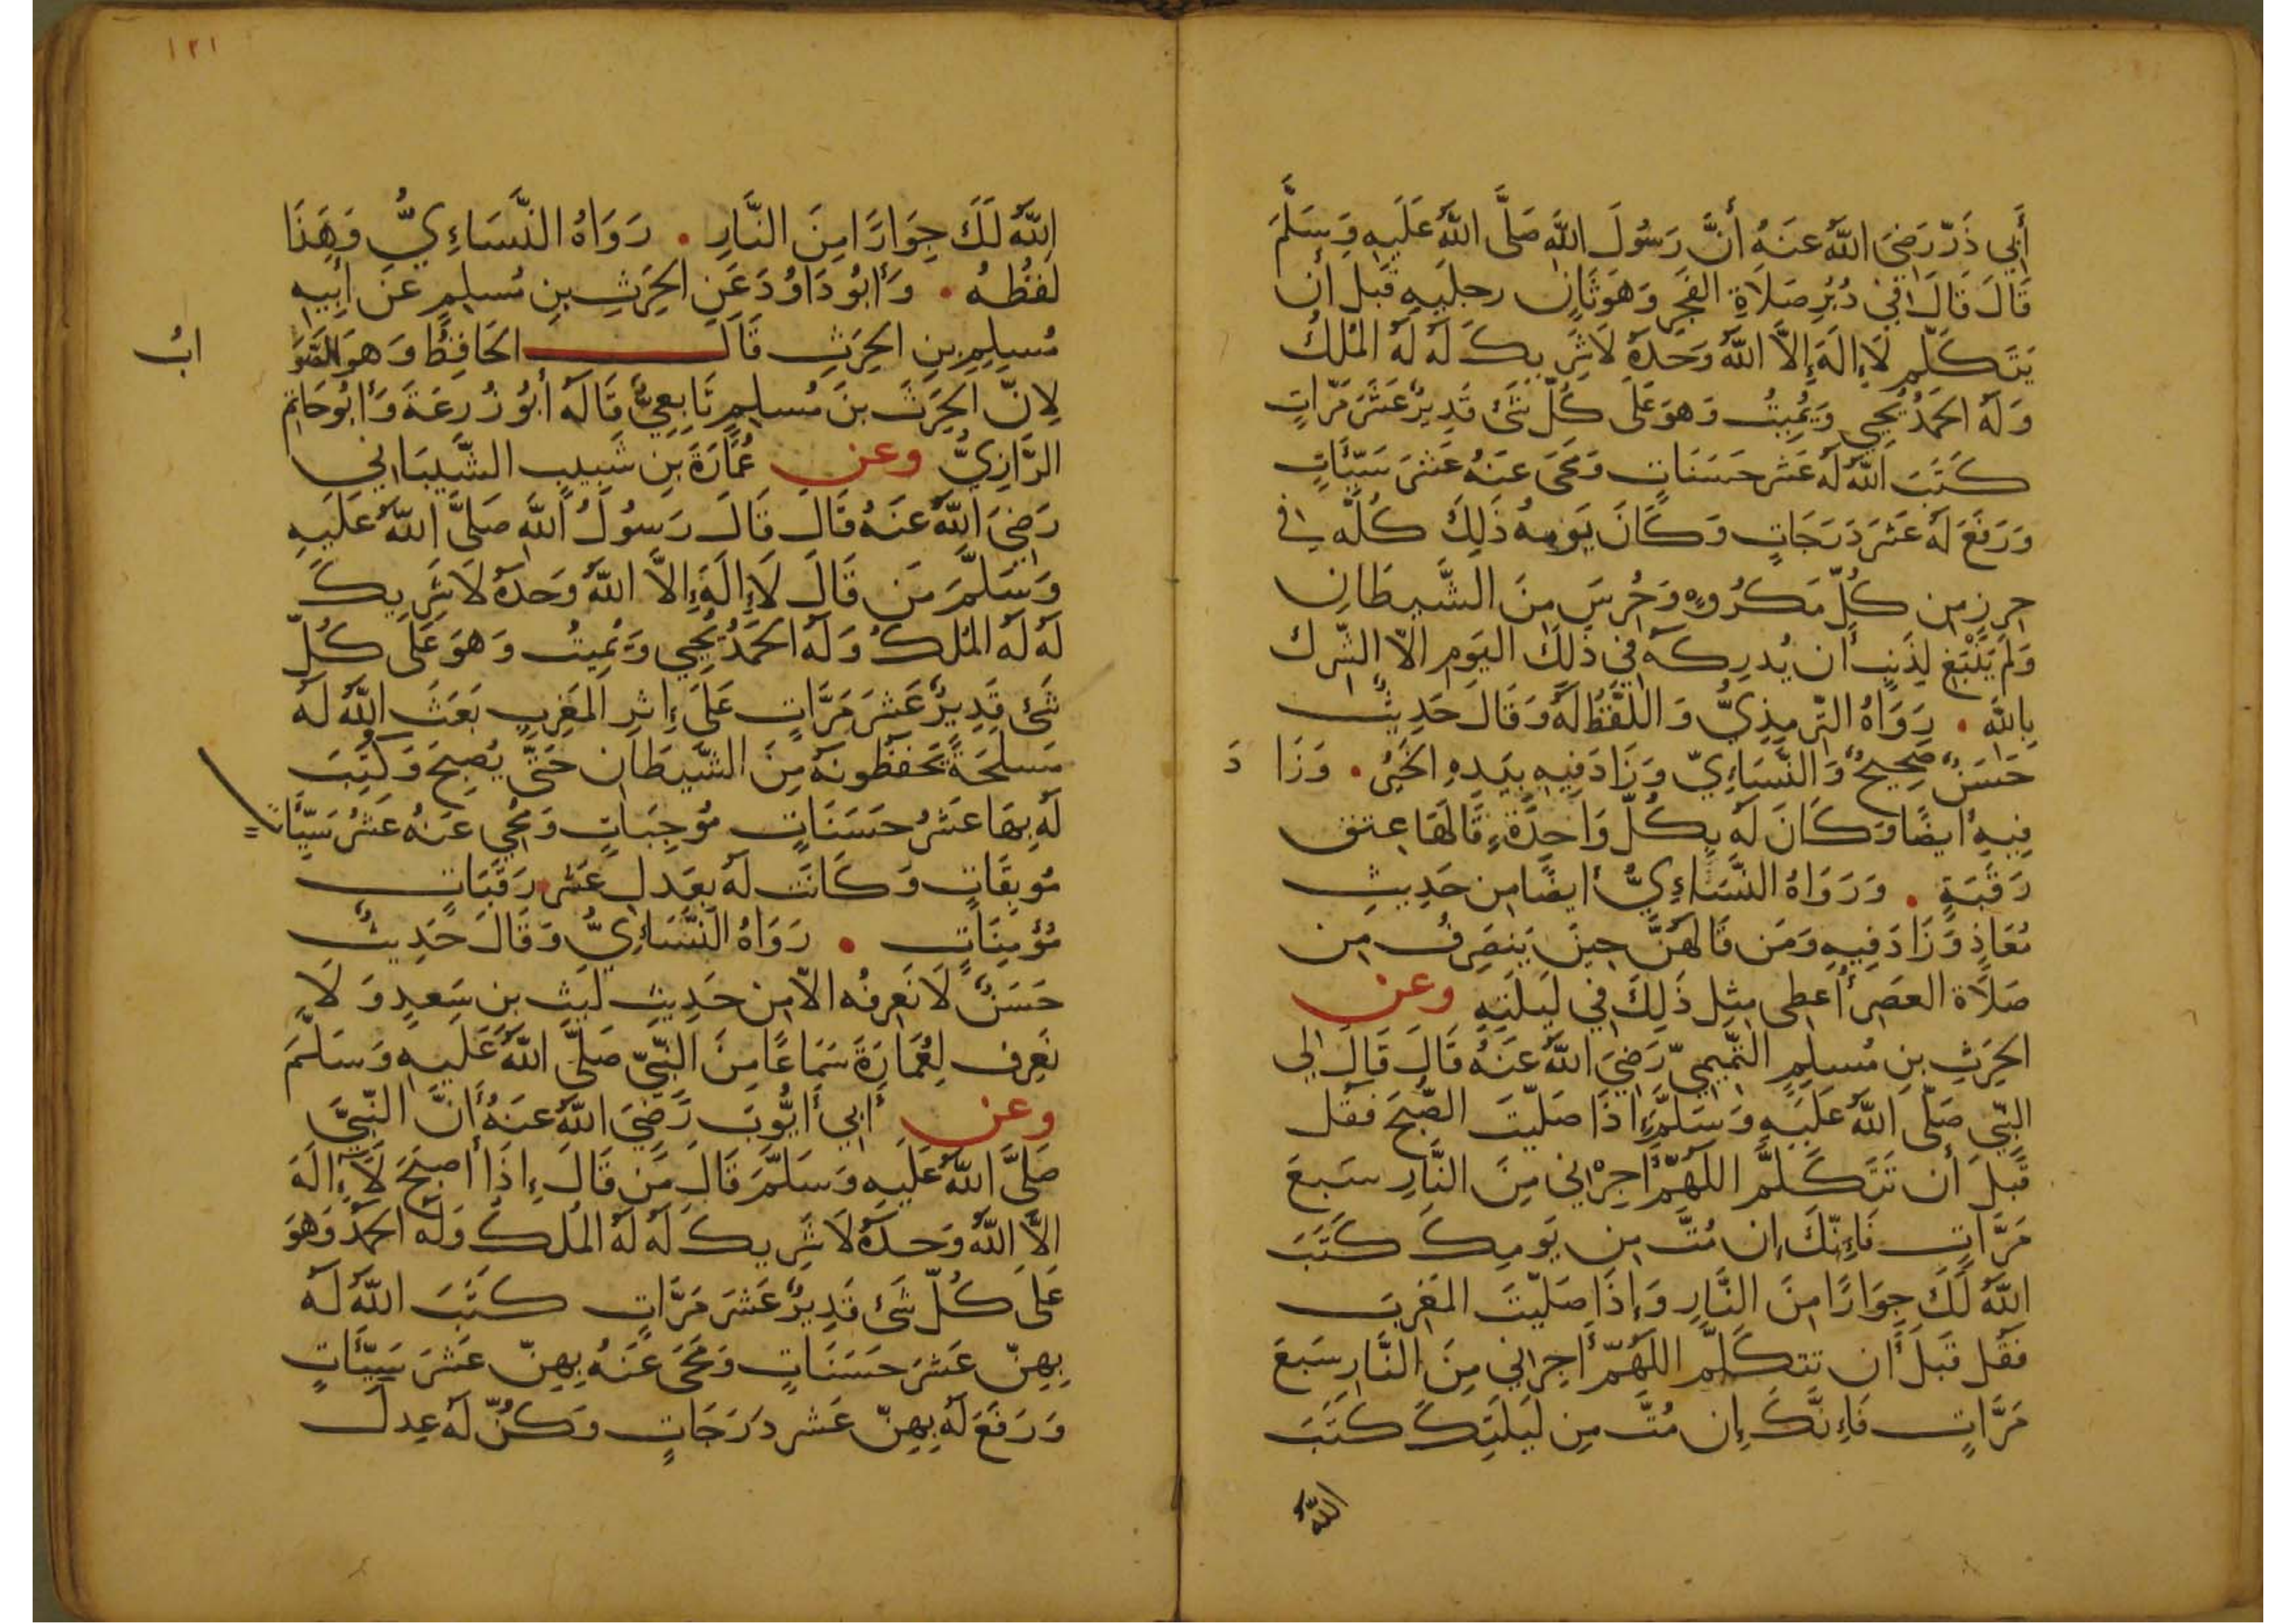 أَبِي ذَرّ رَضِيَ اللَّهُ عَنهُ أَنَّ رَسُولَ اللَّهِ صَلَّى اللَّهُ عَلَيهِ وَسَلَّمَ
قَالَ قَالَ فِي دُبُرِ صَلَاةِ الفَجرِ وَهوَ ثَانٍ رجليهِ قَبلَ أن
يَتَكَلَّم لَا إِلَهَ إِلَّا اللَّهُ وَحدَهُ لَا شَرِيكَ لَهُ لَهُ المُلكُ
وَلَهُ الحَمدُ يُحيِي وَيُمِيتُ وَهوَ عَلَى كُلّ شَئ قَدِيرٌ عَشرَ مَرّاتٍ
كَتَبَ اللَّهُ لَهُ عَشر حَسَنَاتٍ وَمَحَى عَنهُ عَشرَ سَيّئَاتٍ
وَرَفَعَ لَهُ عَشرَ دَرَجَاتٍ وَكَانَ يَومهُ ذَلِكَ كُلّه في
حرزٍ من كُلّ مَكرُوهٍ وَحُرِسَ مِنَ الشَّيطَانِ
وَلَم يَنْبَغِ لِذَنبٍ أَن يُدرِكَه فِي ذَلِكَ اليَومِ الاّ الشّرك
بِاللَّهِ . رَوَاهُ التّرمِذِيُّ وَاللَّفظُ لَهُ وَقَالَ حَدِيثٌ
حَسَنٌ صَحِيحٌ وَالنَّسَاءِيّ وَزَادَ فِيهِ بِيَدِهِ الخَيرُ . وَزَا دَ
فِيهِ أيضًا وَكَانَ لَهُ بِكُلّ وَاحِدَةٍ قَالَهَا عِتق
رَقَبَةٍ . وَرَوَاهُ النَّسَاءِيُّ أيضًا مِن حَدِيثِ
مُعَاذٍ وَزَادَ فِيهِ وَمَن قَالهُنَّ حِينَ يَنصَرِفُ مِن
صَلَاة العَصرِ أُعطِى مِثل ذَلِكَ فِي لَيلَتِهِ وعن
الحَرِثِ بنِ مُسلِمٍ التَّمِيمِيّ رَضِيَ اللَّهُ عَنهُ قَالَ قَالَ لِي
النّبِيّ صَلَّى اللَّهُ عَلَيهِ وَسَلَّمَ إِذَا صَلّيتَ الصُّبحَ فَقُل
قَبلَ أَن تَتَكَلَّمَ اللَّهُمَّ أَجِرْنِي مِنَ النَّارِ سَبعَ
مَرَّاتٍ فَإِنّكَ إِن مُتَّ مِن يَومِكَ كَتَبَ
اللَّهُ لَكَ جِوَارًا مِنَ النَّارِ وَإِذَا صَلّيتَ المَغرِبَ
فَقُل قَبلَ أَن تتكَلَّمَ اللَّهُمّ أَجِرنِي مِنَ النَّارِ سَبعَ
مَرَّاتٍ فَإِنَّكَ إِن مُتَّ مِن لَيلَتِكَ كَتَبَ
اللَّهُ
١٢١
اللَّهُ لَكَ جِوَارًا مِنَ النَّارِ . رَوَاهُ النَّسَاءِيُّ وَهَذَا
لَفظُهُ . وَأَبُو دَاوُدَ عَنِ الحَرِثِ بنِ مُسلِمٍ عَن أَبِيهِ
مُسلِمِ بنِ الحَرِثِ قَالَ الحَافِظُ وَهوَ الصَّوَ
ابُ
لِانّ الحَرِثَ بنَ مُسلِمٍ تَابِعِيٌّ قَالَه أَبُو زُرعَةَ وَأَبُو حَاتِمٍ
الرَّازِيُّ وعن عُمَارَةَ بنِ شَبِيبٍ الشَّيبَانِي
رَضِيَ اللَّهُ عَنهُ قَالَ قَالَ رَسُولُ اللَّهِ صَلَّى اللَّهُ عَلَيهِ
وَسَلَّمَ مَن قَالَ لَا إِلَهَ إِلاَّ اللَّهُ وَحدَهُ لَا شَرِيكَ
لَهُ لَهُ المُلكُ وَلَهُ الحَمدُ يُحيِي وَيُمِيتُ وَهوَ عَلَى كُلّ
شَئ قَدِيرٌ عَشرَ مَرَّاتٍ عَلَى إِثرِ المَغرِبِ بَعَثَ اللَّهُ لَهُ
مَسلحَةً تَحفَظُونَهُ مِنَ الشَّيطَانِ حَتَّى يُصبِحَ وَكُتِبَ
لَهُ بِهَا عَشرُ حَسَنَاتٍ مُوجِبَاتٍ وَمُحِي عَنهُ عَشرُ سَيِّئَاتٍ
مُوبِقَاتٍ وَكَانَت لَهُ بعَدلِ عَشرِ رَقَبَاتٍ
مُؤمِنَاتٍ . رَوَاهُ النَّسَاءِيُّ وَقَالَ حَدِيثٌ
حَسَنٌ لَا نَعرِفُه الاّ مِن حَدِيثِ لَيثِ بنِ سَعِيدٍ وَلَا
نَعرِف لِعُمَارَةَ سَمَاعًا مِنَ النّبِيّ صَلَّى اللَّهُ عَلَيهِ وَسَلَّمَ
وعن أَبِي أَيُّوبَ رَضِيَ اللَّهُ عَنهُ أَنَّ النّبِيَّ
صَلَّى اللَّهُ عَلَيهِ وَسَلَّمَ قَالَ مَن قَالَ إِذَا أصبَحَ لَا إِلَهَ
الاَّ اللَّهُ وَحدَهُ لَا شَرِيكَ لَهُ لَهُ المُلكُ وَلَهُ الحَمدُ وَهوَ
عَلَى كُلّ شَئ قَدِيرٌ عَشرَ مَرَّاتٍ كَتَبَ اللَّهُ لَهُ
بِهِنّ عَشرَ حَسَنَاتٍ وَمَحَى عَنهُ بِهِنّ عَشرَ سَيِّئَاتٍ
وَرَفَعَ لَهُ بِهِنّ عَشر دَرَجَاتٍ وَكُنّ لَهُ عِدلَ